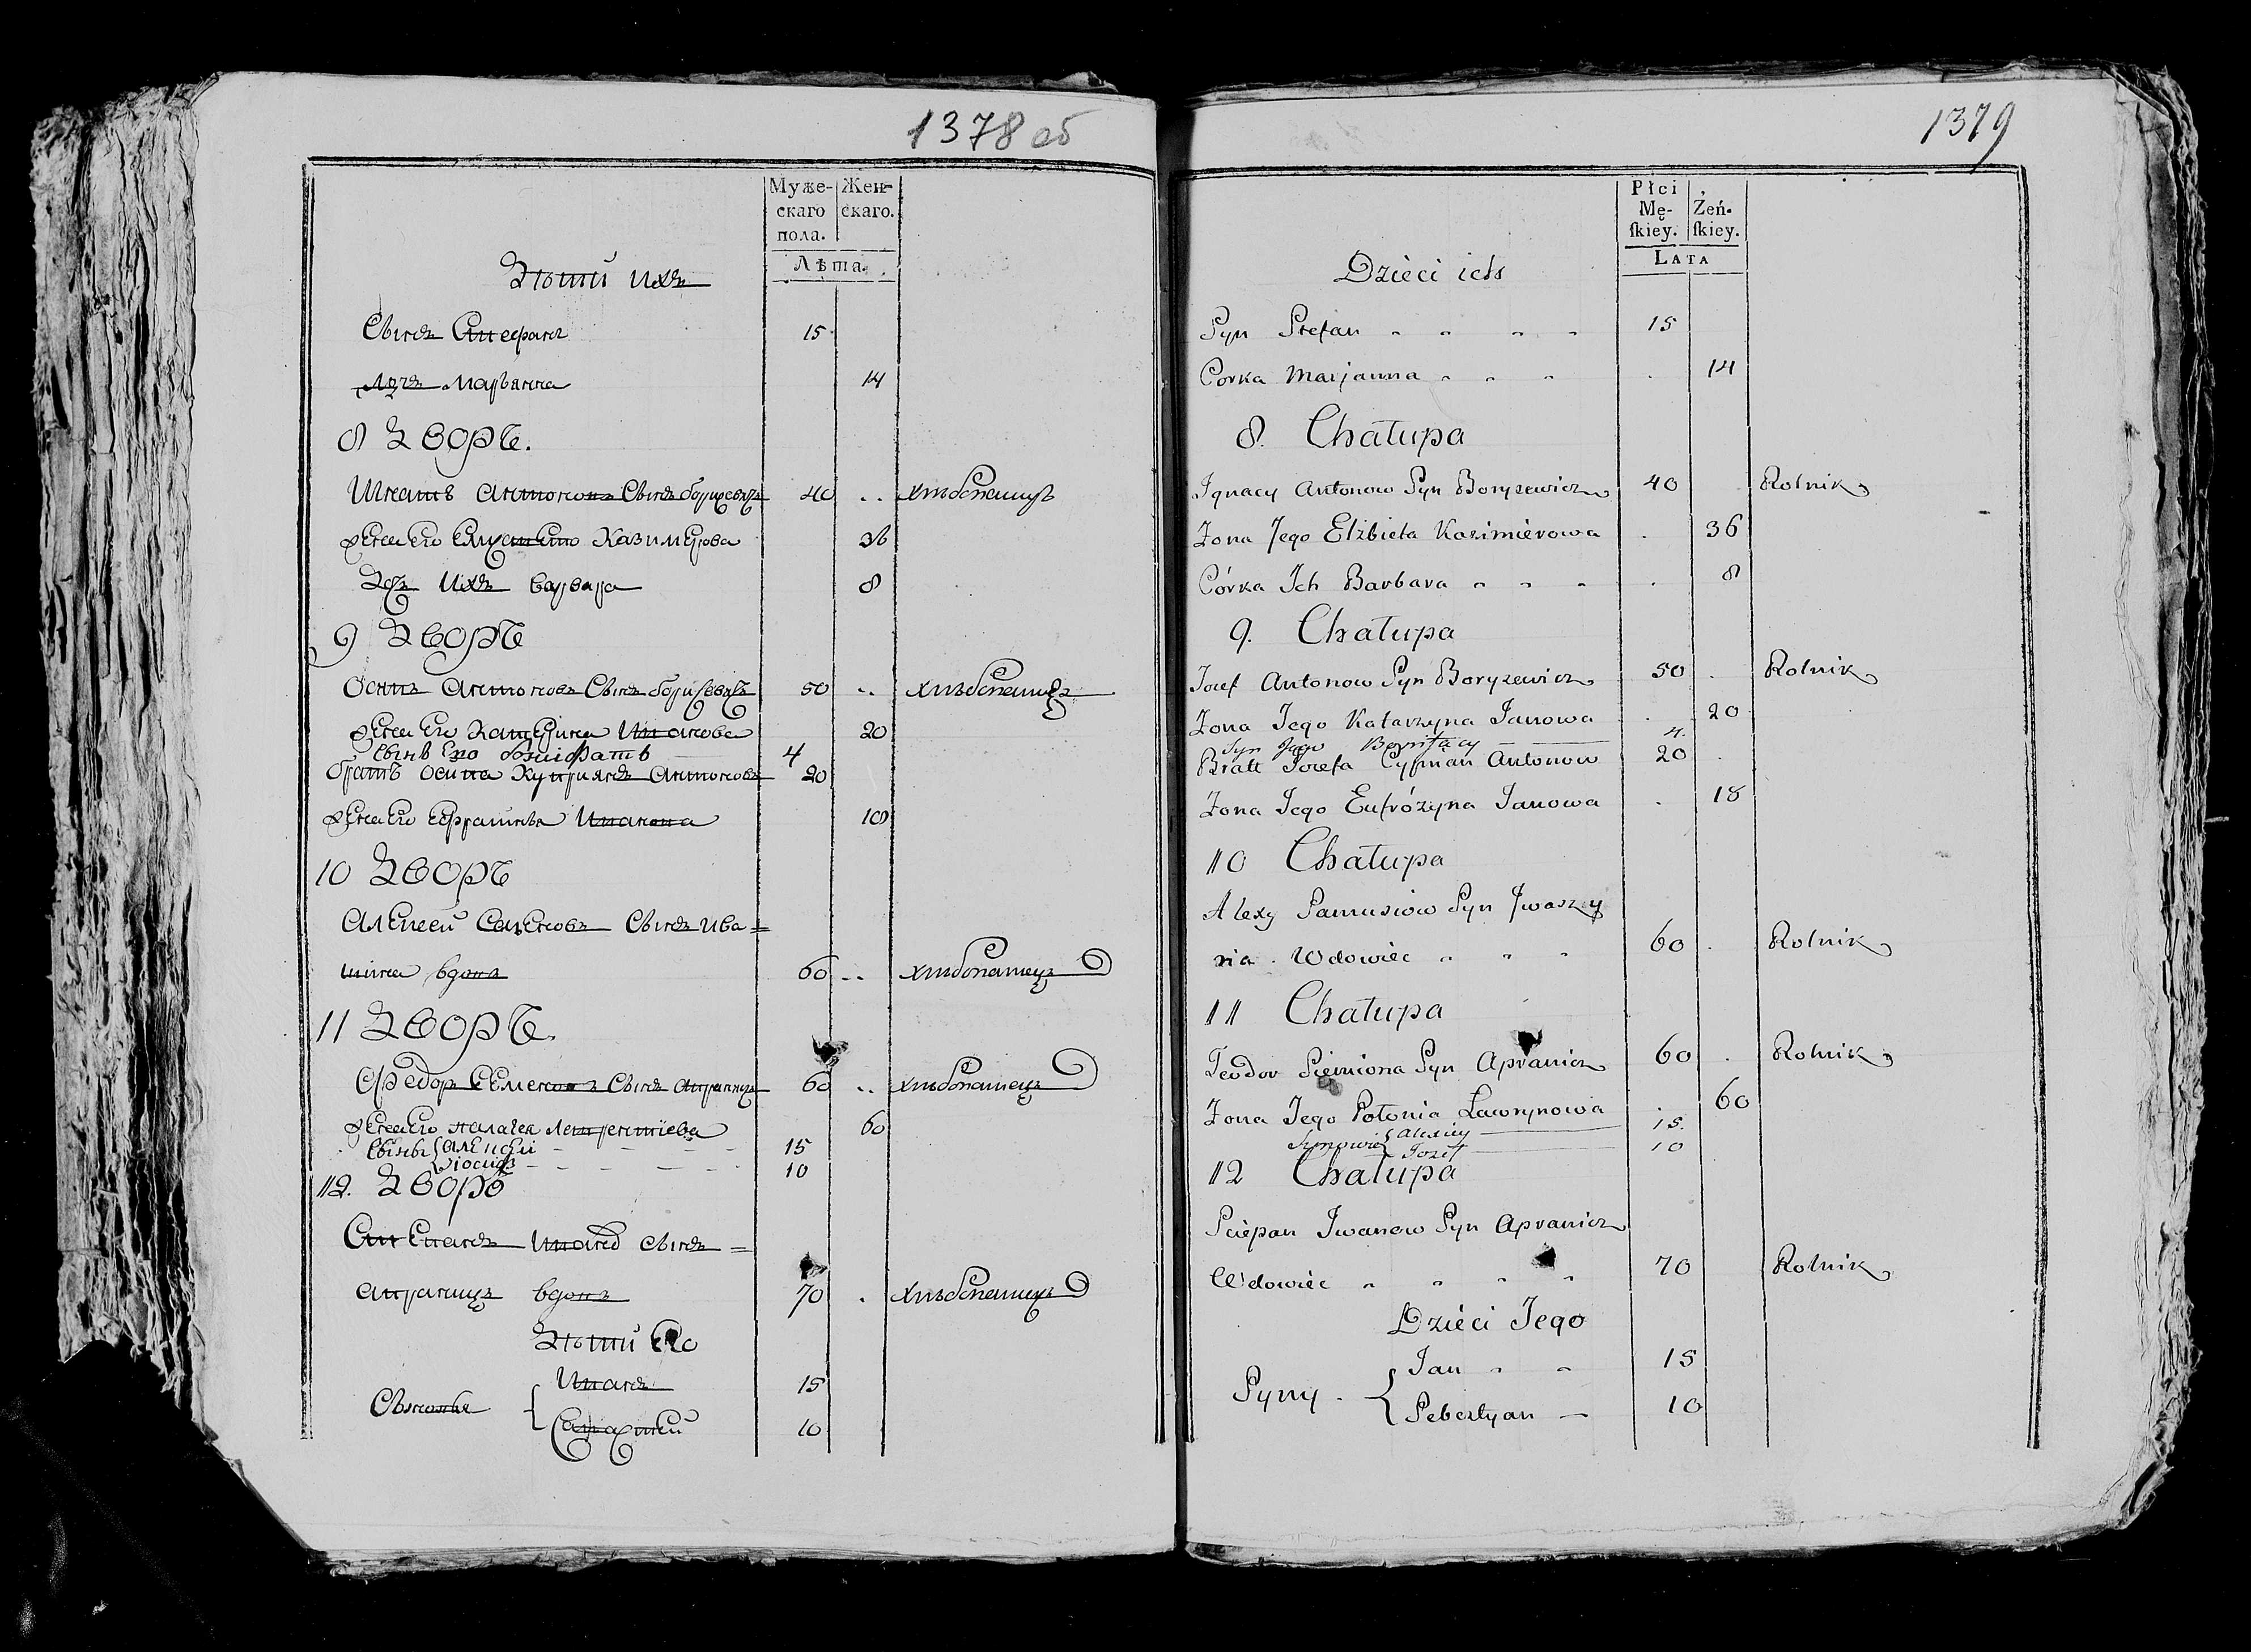 1378 об
Муже-
скаго
пола.
Жен-
скаго.
Лѣта.
Дѣти ихъ
Сынъ Стефанъ 15
Дочь Марьянна 14
8 Дворъ.
Игнатъ Антоновъ Сынъ Борисевичъ 40 .. хлѣбопашецъ
Жена Его Елизавета Казимерова 36
Дочь Ихъ Варвара 8
9 Дворъ
Осипъ Антоновъ Сынъ Борисевичъ 50 .. хлѣбопашецъ
Жена Его Катерина Иванова 20
Сынъ Его Бонифатъ 4
братъ Осипа Куприянъ Антоновъ 20
Жена Его Ефрасинья Иванова 18
10 Дворъ
Алексей Сын Ива=
шина вдовъ 60 .. хлѣбопашецъ
11 Дворъ.
Федоръ Семеновъ Сынъ Апраничъ 60 .. хлѣбопашецъ
Жена Его 60
Сыны { Алексей 15
Иосифъ 10
12. Дворъ
Степанъ Ивановъ Сынъ =
Апраничъ вдовъ 70 . хлѣбопашецъ
Дѣти Его
Сыновья { Иванъ 15
10
1379
Płci
Mę-
skiey.
Żeń-
skiey.
LATA
Dzieci ich
Syn Stefan 15
Corka Marjanna 14
8. Chałupa
Ignacy Antonow Syn Boryzewicz 40 Rolnik
Zona Jego Elżbieta Kazimierowa 36
Córka Ich Barbara 8
9. Chałupa
Jozef Antonow Syn Boryzewicz 50 Rolnik
Zona Jego Katarzyna Janowa 20
Syn Jego Bonifacy 4.
Bratt Jozefa Cypriân Antonow 20
Zona Jego Eufrózyna Janowa 18
10 Chałupa
Alexy Samusiow Syn Jwaszy
nia. Wdowiec 60 Rolnik
11 Chałupa
Teodor Siemiona Syn Apranicz 60 Rolnik
Zona Jego Połonia Ławrynowa 60
Synowie { Alexiey 15.
Jozef 10
12 Chałupa
Sciepan Jwanow Syn Apranicz
Wdowiec 70 Rolnik
Dzieci Jego
Syny. { Jan 15
Sebestyan 10